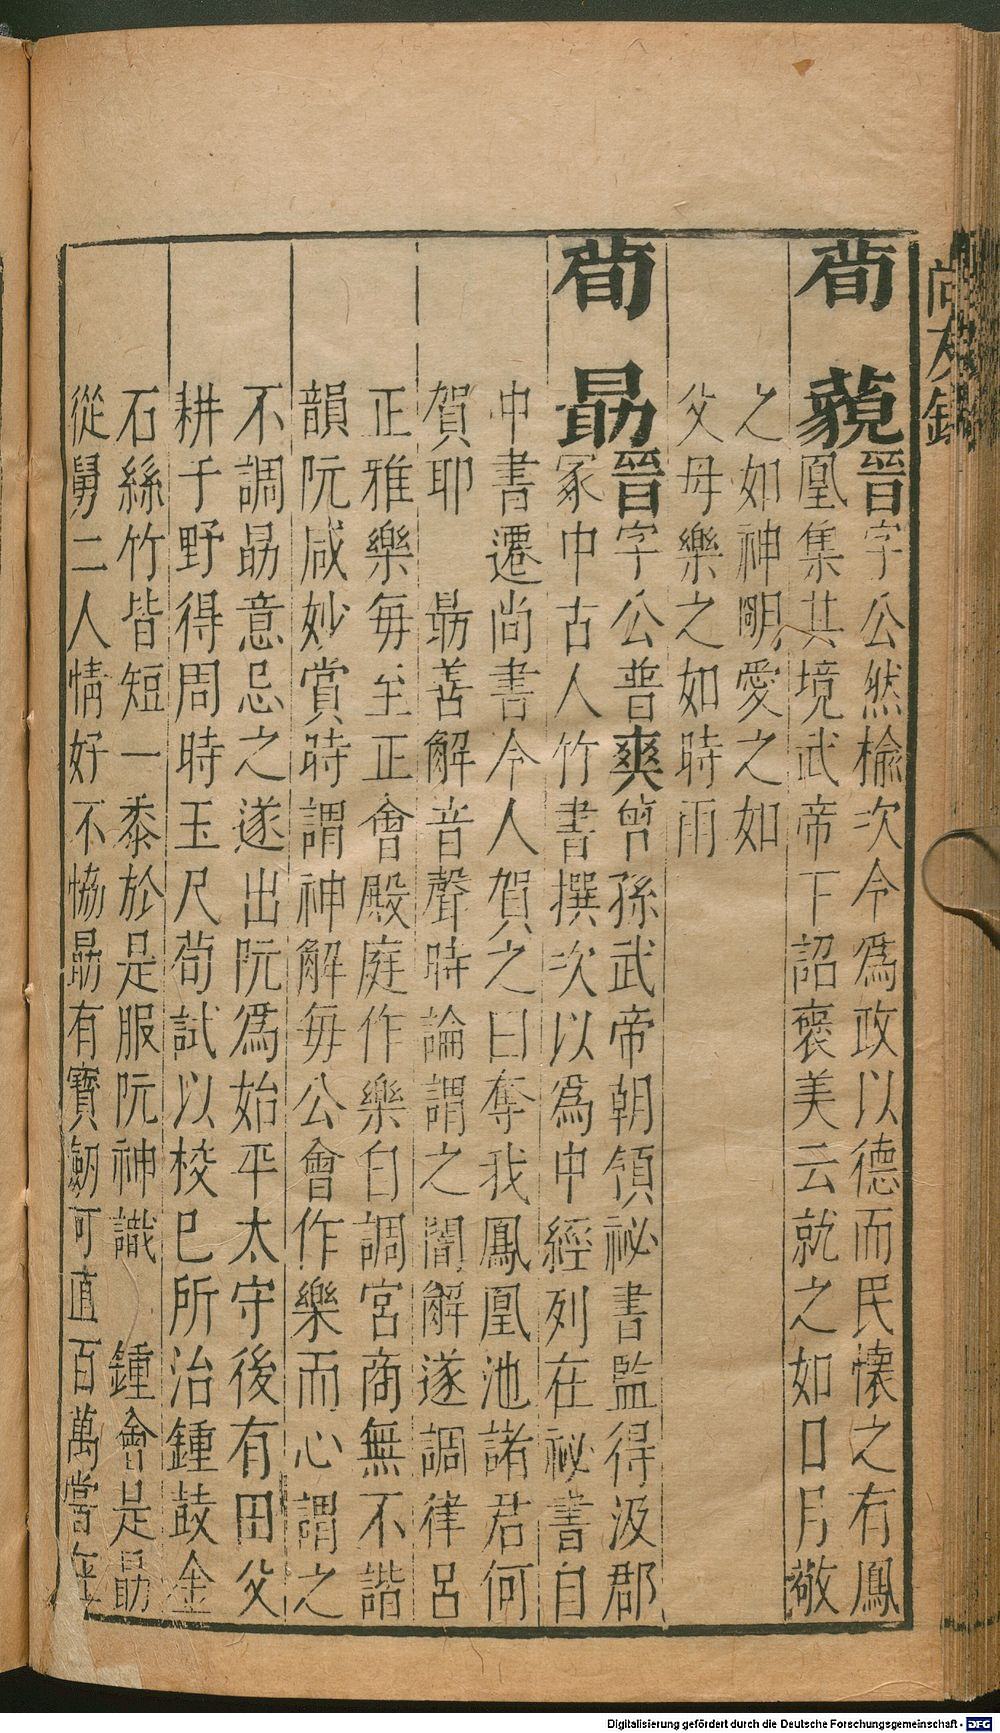 尚友錄
荀藐
晉字公然榆次令為政以德而民懷之有鳳
凰集其境武帝下詔褒美云就之如日月敬
之如神明愛之如
父母樂之如時雨
荀勗
晉字公普爽曾孫武帝朝領祕書監得汲郡
冢中古人竹書撰次以為中經列在祕書自
中書遷尚書令人賀之曰奪我鳳凰池諸君何
賀耶　勗善解音聲時論謂之闇解遂調律呂
正雅樂每至正會殿庭作樂自調宮商無不諧
韻阮咸妙賞時謂神解每公會作樂而心謂之
不調勗意忌之遂出阮為始平太守後有田父
耕于野得周時玉尺荀試以校巳所治鍾鼓金
石絲竹皆短一黍於是服阮神識　鍾會是勗
從舅二人情好不恊勗有寶劒可直百萬嘗在
Digitalisierung gefördert durch die Deutsche Forschungsgemeinschaft - DFG